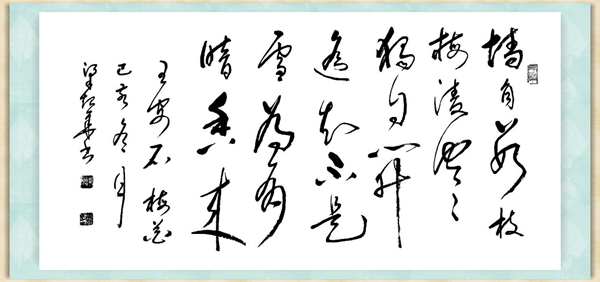 墙角数枝
梅凌寒
獨自開
遥知不是
雪為有
暗香来
王安石梅花
己亥冬月